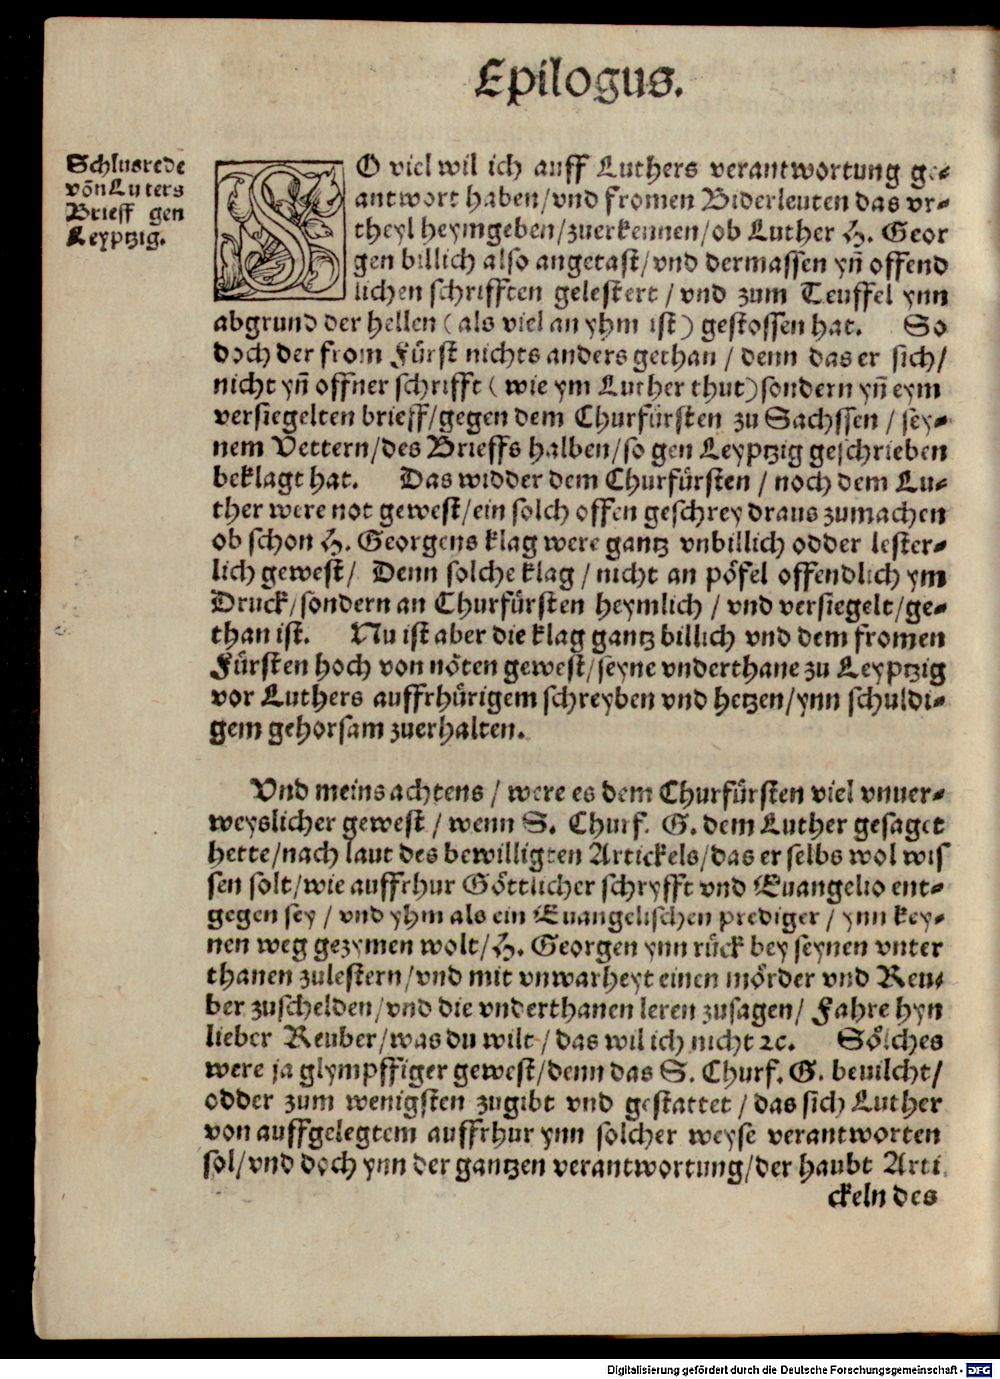 Epilogus.
Schlusrede
võn Luters
Brieff gen
Leyptzig.
SO viel wil ich auff Luthers verantwortung ge⸗
antwort haben/vnd fromen Biderleuten das vr⸗
theyl heymgeben/zuerkennen/ob Luther H. Geor
gen billich also angetast/vnd dermassen yñ offend
lichen schrifften gelestert / vnd zum Teuffel ynn
abgrund der hellen (als viel an yhm ist) gestossen hat. So
doch der from Fürst nichts anders gethan / denn das er sich/
nicht yñ offner schrifft (wie ym Luther thut) sondern yñ eym
versiegelten brieff/gegen dem Churfürsten zu Sachssen / sey⸗
nem Vettern/des Brieffs halben/so gen Leyptzig geschrieben
beklagt hat. Das widder dem Churfürsten / noch dem Lu⸗
ther were not gewest/ein solch offen geschrey draus zumachen
ob schon H. Georgens klag were gantz vnbillich odder lester⸗
lich gewest/ Denn solche klag / nicht an pöfel offendlich ym
Druck/sondern an Churfürsten heymlich / vnd versiegelt/ge⸗
than ist. Nu ist aber die klag gantz billich vnd dem fromen
Fürsten hoch von nöten gewest/seyne vnderthane zu Leyptzig
vor Luthers auffrhürigem schreyben vnd hetzen/ynn schuldi⸗
gem gehorsam zuerhalten.
Vnd meins achtens / were es dem Churfürsten viel vnuer⸗
weyslicher gewest / wenn S. Churf. G. dem Luther gesaget
hette/nach laut des bewilligten Artickels/das er selbs wol wis
sen solt/wie auffrhur Göttlicher schryfft vnd Euangelio ent⸗
gegen sey / vnd yhm als ein Euangelischen prediger / ynn key⸗
nen weg gezymen wolt/H. Georgen ynn rück bey seynen vnter
thanen zulestern/vnd mit vnwarheyt einen mörder vnd Reu⸗
ber zuschelden/vnd die vnderthanen leren zusagen/ Fahre hyn
lieber Reuber/was du wilt/das wil ich nicht ꝛc. Sölches
were ja glympffiger gewest/denn das S. Churf. G. beuilcht/
odder zum wenigsten zugibt vnd gestattet / das sich Luther
von auffgelegtem auffrhur ynn solcher weyse verantworten
sol/vnd doch ynn der gantzen verantwortung/der haubt Arti
ckeln des
Digitalisierung gefördert durch die Deutsche Forschungsgemeinschaft - DFG